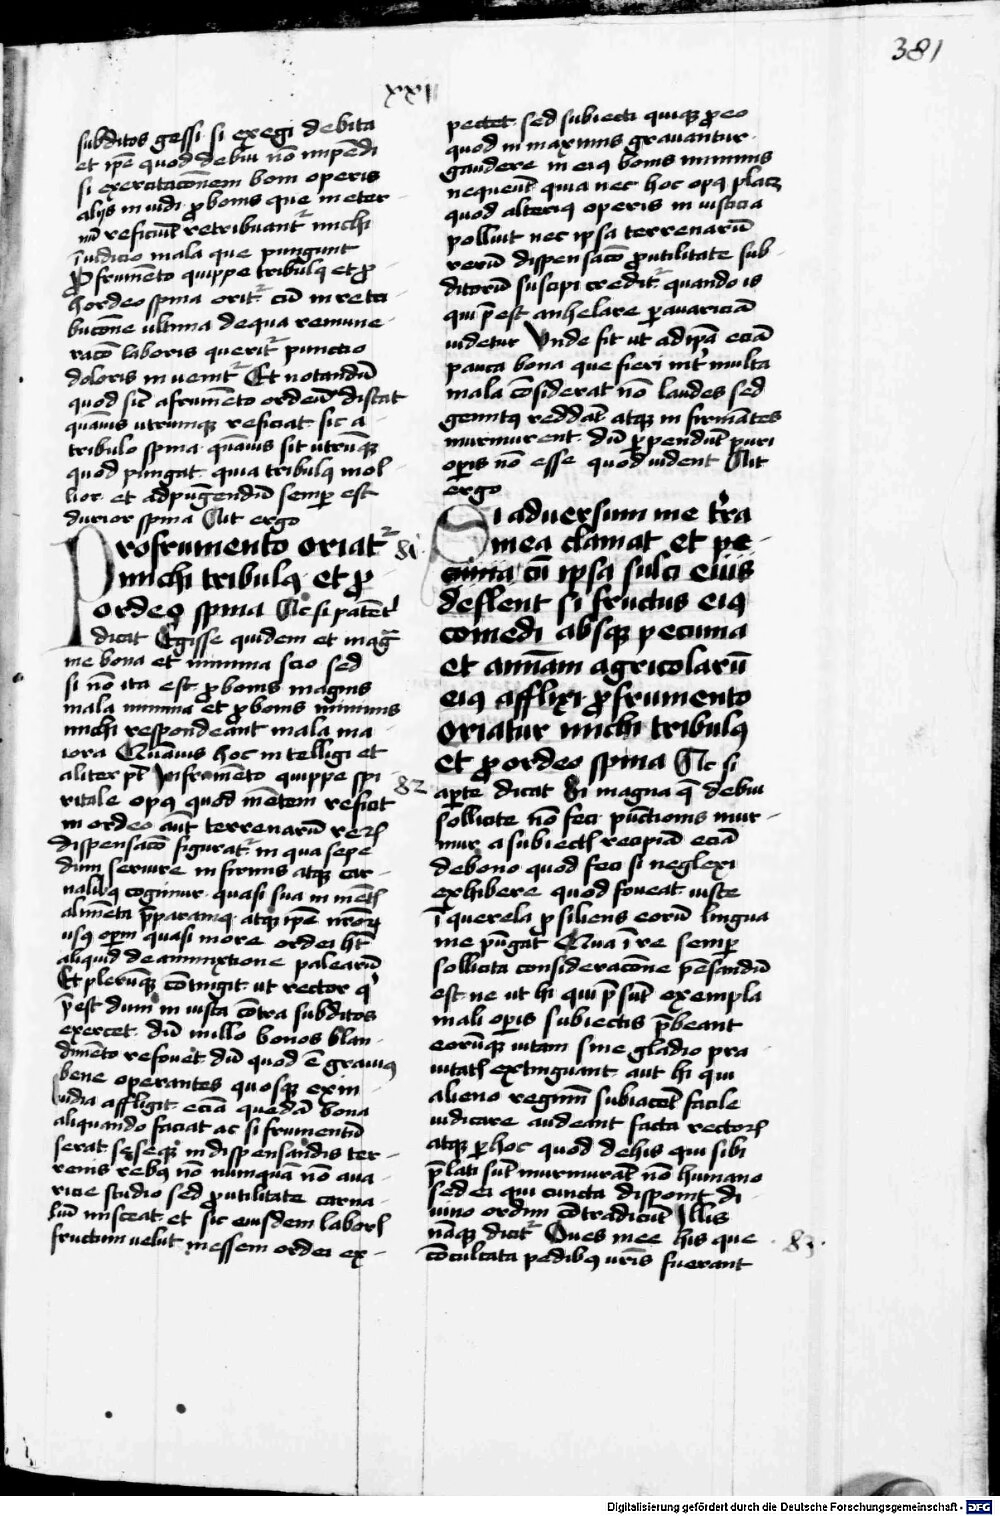 381
xxii
subditos gessi · si exegi debita
et ip̄e quod debui nō impēdi
si exercitacōnem boni operis
alijs in uidi · ꝓ bonis que in eter-
nū reficiūt retribuant᷑ michi
ī iudicio mala que pungunt
Ꝓ frumēto quippe tribulꝰ et ꝓ
hordeo spina orit᷑ cū in retri-
bucōne ultima de qua remune-
racō laboris querit᷑ punctio
doloris in uenit᷑ Et notandū
quod sic̄ a frumēto ordeū distat
quāuis utrumqꝫ reficiat sic a
tribulo spina · quāuis sit utrūqꝫ
quod pungat · quia tribulꝰ mol-
lior et ad pūgendū semper est
durior spina Ait ergo
Pro frumento oriat᷑ 81
michi tribulꝰ et ꝓ
ordeo spina Ac si patēt᷑
dicat Egisse quidem et mag-
me bona et minima scio sed
si nō ita est ꝓ bonis magnis
mala minima et ꝓ bonis minimis
michi respondeant mala ma-
iora Quāuis hoc intelligi et
aliter pt̄ In frumēto quippe spi-
ritale opꝰ quod mētem reficit
in ordeo aūt terrenarū reꝝ
dispensacō figurat᷑ in qua sepe
dum seruire infirmis atqꝫ car-
nalibꝫ cogimur · quasi iumentis
alimēta p̄paramꝰ atqꝫ ipē nr̄oꝝ
usꝰ operū quasi more ordei hēt
aliquid de ammixtione palearū
Et plerūqꝫ cōtingit ut rector qͥ
p̄est dum in iusta cōtra subditos
exercet · dū nullo bonos blan-
dimēto refouet dū quod ē grauiꝰ
bene operantes quosqꝫ ex in-
uidia affligit eciā quedā bona
aliquando faciat ac si frumentū
serat seseqꝫ in dispensandis ter-
renis rebꝰ nō nunquā nō aua-
ricie studio sed ꝓ utilitate carna-
liū misceat · et sic eiusdem laboris
fructum uelut messem ordei ex-
pectet · sed subiecti quiqꝫ ꝓ eo
quod in maximis grauantur ·
gaudere in eiꝰ bonis minimis
nequeūt quia nec hoc opꝰ placꝫ
quod alteriꝰ operis in iusticia
polluit nec ipsa terrenarū
rerū dispensacō ꝓ utilitate sub-
ditorū suscipi credit᷑ quando is
qui p̄est anhelare ꝑ auariciā
uidetur Vnde fit ut ad ipā eciā
pauca bona que fieri int᷑ multa
mala cōsiderat nō laudes sed
gemitꝰ reddāt · atqꝫ infirmātes
murmurent dū ꝑpendūt puri
oꝑis nō esse quod uident Ait
ergo
Si aduersum me tr̄ra
mea clamat et pe-
cunia cū ipsa sulci eius
deflent si fructus eiꝰ
comedi absqꝫ pecunia
et animam agricolarū
eiꝰ afflixi ꝓ frumento
oriatur michi tribulꝰ
et ꝓ ordeo spina Ac si
82 aꝑte dicat Si magna q̄ debui
sollicite nō feci punctionis mur-
mur a subiectis recipiā eciā
de bono quod feci si neglexi
exhibere quod foueat iuste
ī querela ꝓsiliens eorū lingua
me pūgat Qua ī re semꝑ
sollicita consideracōne pēsandū
est ne ut hi qui p̄sūt exempla
mali oꝑis subiectis p̄beant
eorūqꝫ uitam sine gladio pra-
uitatis extinguant aut hi qui
alieno regimini subiacēt facile
iudicare audeant facta rectorū
atqꝫ ꝑ hoc quod de his qui sibi
p̄lati sūt murmurāt nō humano
sed ei qui cuncta disponit di-
uino ordini cōtradicūt Illis
nāqꝫ dicit᷑ Oues mee his que 83
cōculcata pedibꝰ uestris fuerant
Digitalisierung gefördert durch die Deutsche Forschungsgemeinschaft - DFG